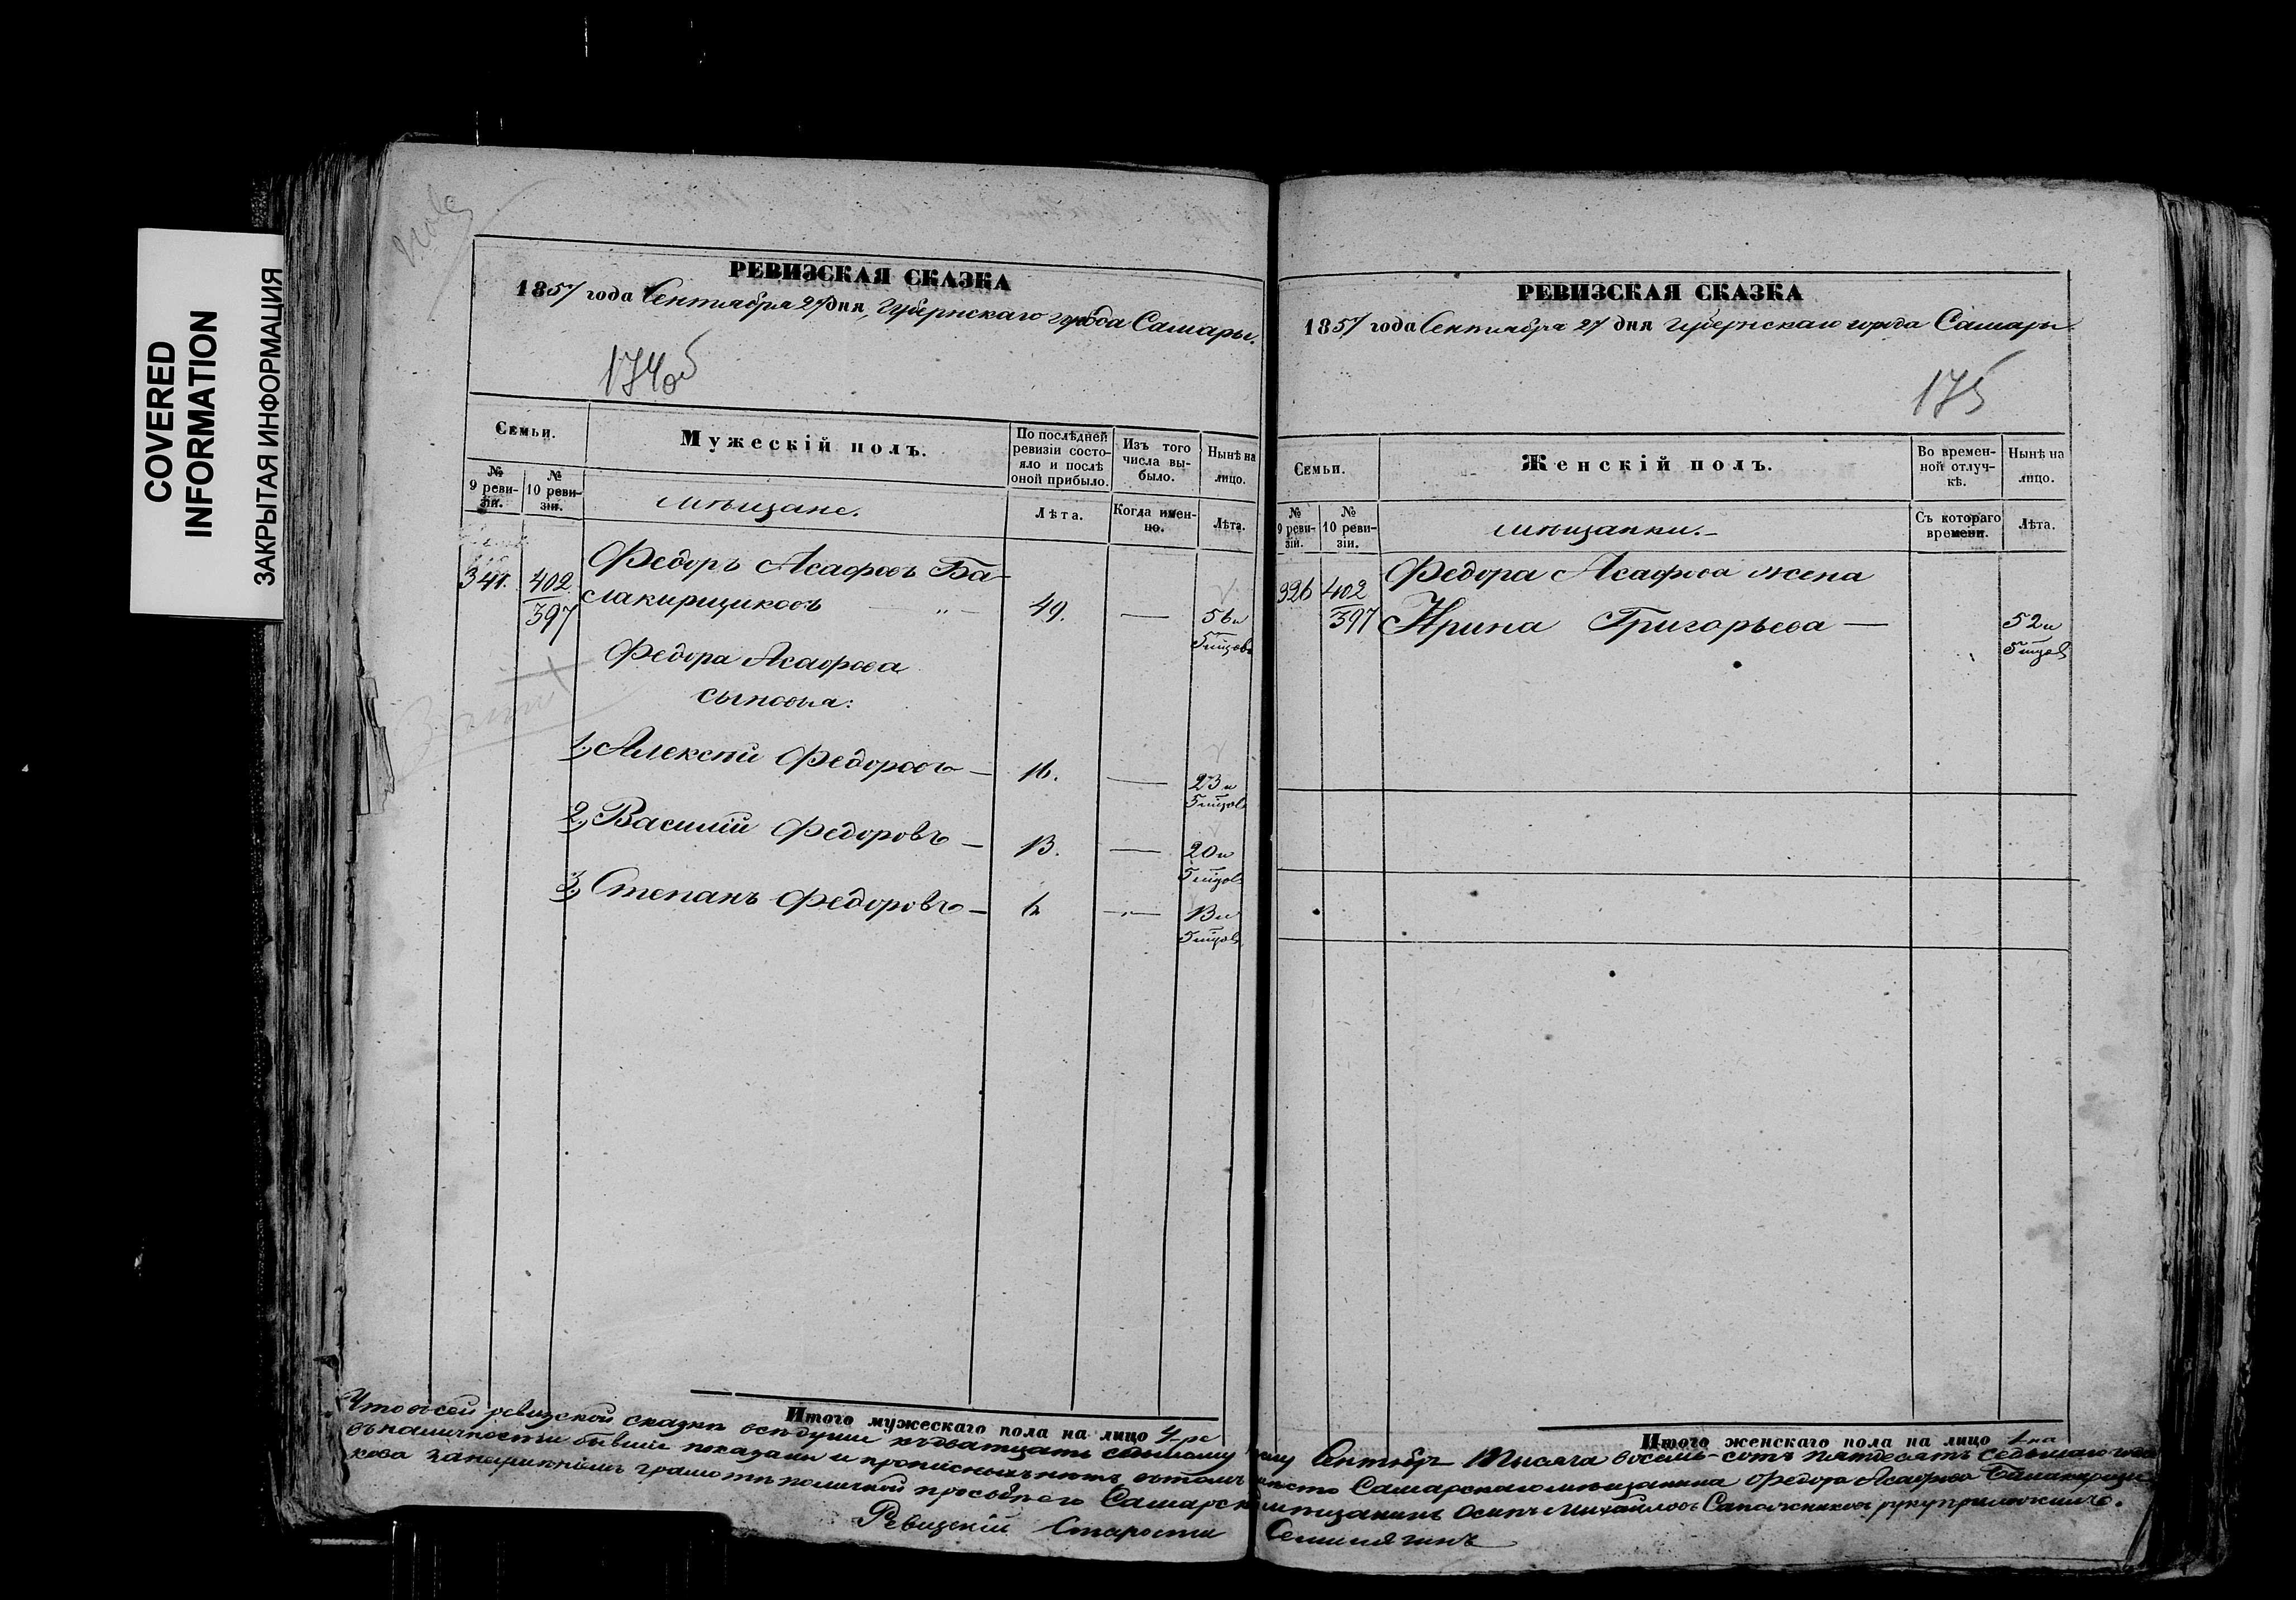 COVERED
INFORMATION
ЗАКРЫТАЯ ИНФОРМАЦИЯ
РЕВИЗСКАЯ СКАЗКА
1857 года Сентября 27 дня, Губернскаго города Самары.
174об
Семьи.
Мужескій полъ.
По послѣдней ревизіи состояло и послѣ оной прибыло.
Изъ того числа выбыло.
Нынѣ на лицо.
№ 9 ревизіи.
№ 10 ревизіи.
мѣщане.
Лѣта.
Когда именно.
Лѣта.
Федоръ Асафовъ Ба-
341. 402 слакирщиковъ — „ — 49. — 56 и
397 5 мцовъ
Федора Асафова
сыновья:
1, Алексѣй Федоровъ — 16. — 23 и
5 мцовъ
2, Василій Федоровъ — 13. — 20 и
5 мцовъ
3, Степанъ Федоровъ — 6. — 13 и
5 мцовъ
Итого мужескаго пола на лицо 4-ре
РЕВИЗСКАЯ СКАЗКА
1857 года Сентября 27 дня Губернскаго города Самары.
175
Семьи.
Женскій полъ.
Во временной отлучкѣ.
Нынѣ на лицо.
№ 9 ревизіи.
№ 10 ревизіи.
мѣщанки.
Съ котораго времени.
Лѣта.
326 402 Федора Асафова жена
397 Ирина Григорьева — 52 и
5 мцовъ
Итого женскаго пола на лицо 1-на
Что въ сей ревизской сказки всѣ души къ двадцать седьмому Сентябр Тысяча восемь-сотъ пятдесятъ седьмаго года
въ наличности бывшіе показаны и прописныхъ нѣтъ въ томъ вмѣсто Самарскаго мѣщанина Федора Асафова
кова за неумѣніемъ грамотѣ по личной просьбѣ его Самарск мѣщанинъ Осипъ Михайловъ Сапожниковъ руку приложилъ.
Ревизскій Староста